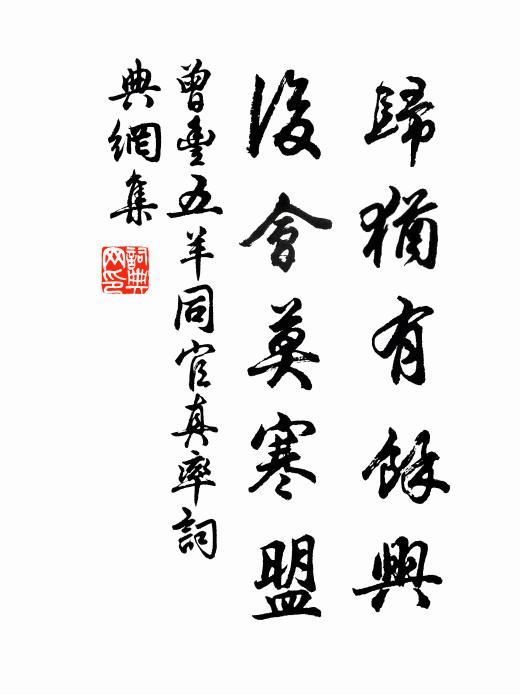 歸猶有餘興
後會莫寒盟
曾豐五羊同官真率詞
典網集
詞典
网印